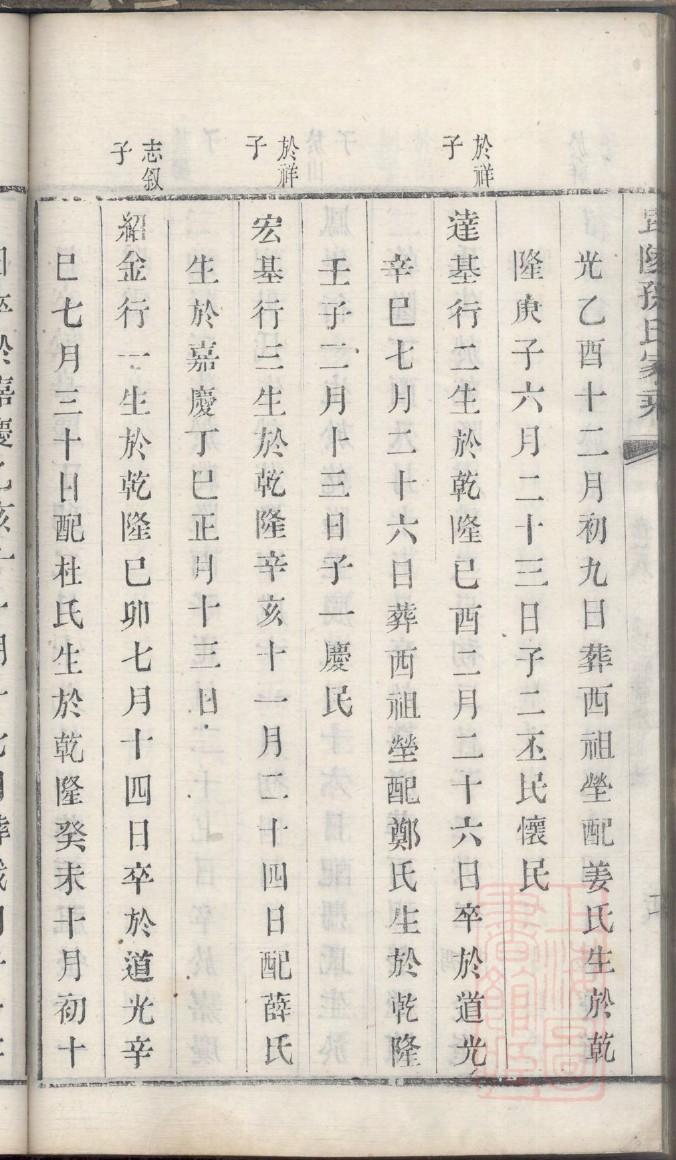 孫氏家乘
光乙酉十二月初九日葬西祖塋配姜氏生於乾
隆庚子六月二十三日子二丕民懷民
於祥子
達基行二生於乾隆己酉二月二十六日卒於道光
辛巳七月二十六日葬西祖塋配鄭氏生於乾隆
壬子二月十三日子一慶民
於祥子
宏基行三生於乾隆辛亥十一月二十四日配薛氏
生於嘉慶丁巳正月十三日
志叙子
紹金行一生於乾隆己卯七月十四日卒於道光辛
巳七月三十日配杜氏生於乾隆癸未十月初十